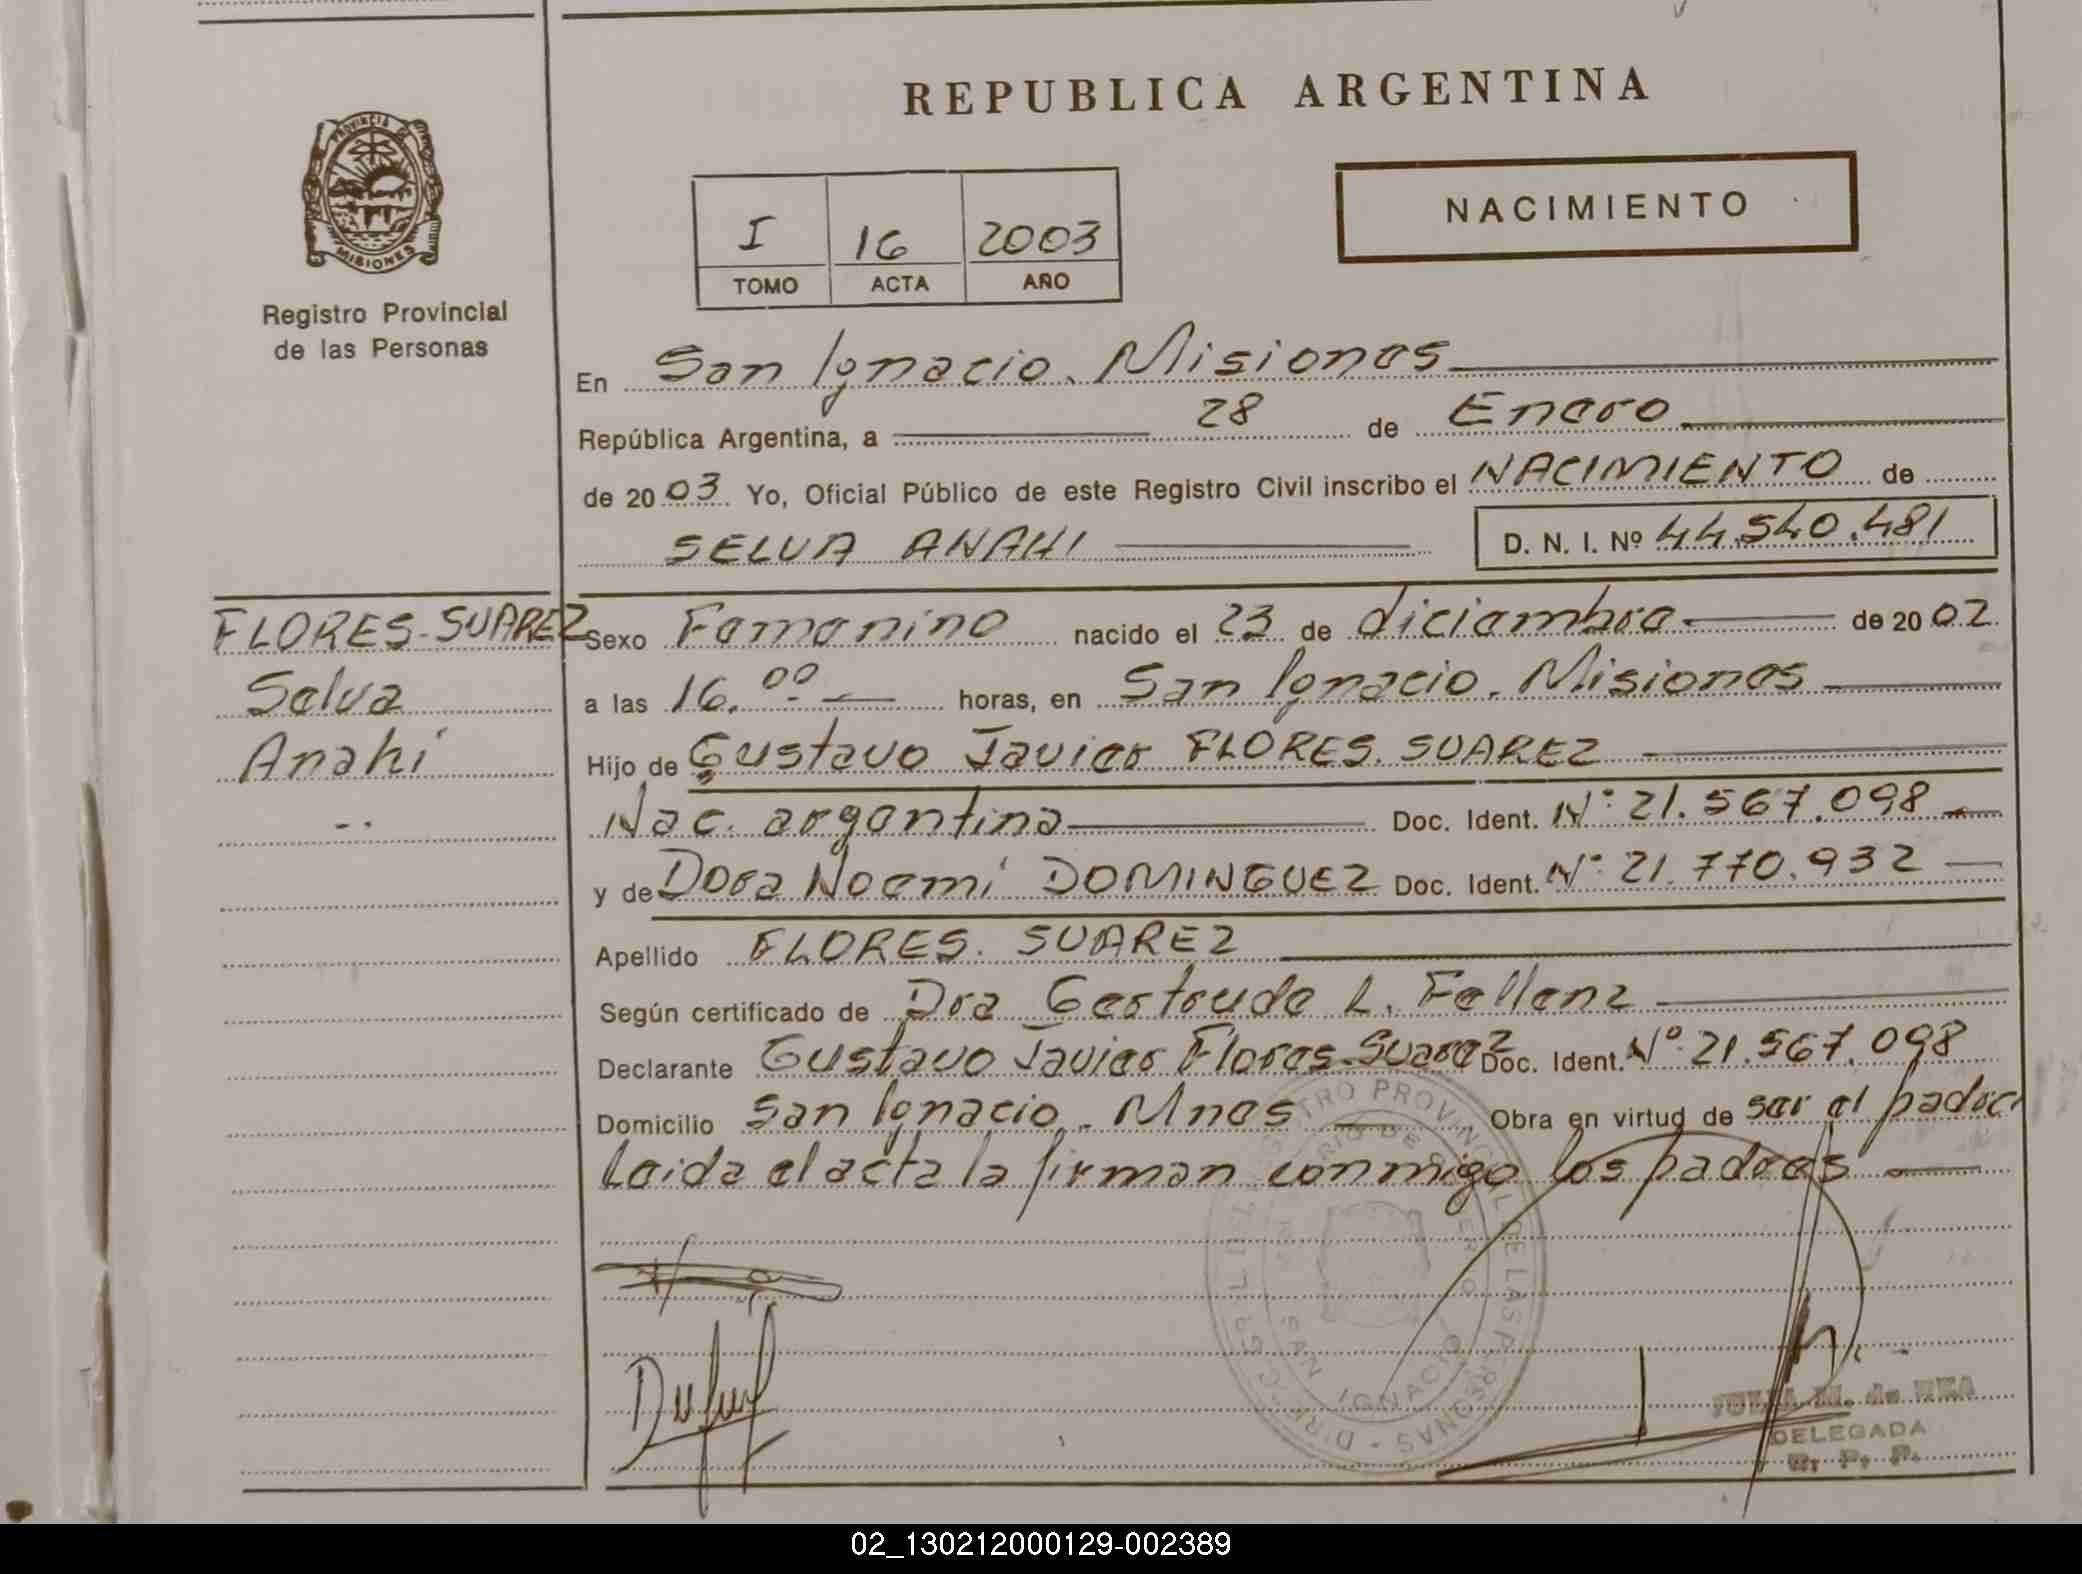 REPUBLICA ARGENTINA
PROVINCIA DE
MISIONES
Registro Provincial
de las Personas
NACIMIENTO
I 16 2003
TOMO ACTA AÑO
En San Ignacio. Misiones
República Argentina, a 28 de Enero
de 2003 Yo, Oficial Público de este Registro Civil inscribo el NACIMIENTO de
SELVA ANAHI D. N. I. Nº 44.540.481
FLORES-SUAREZ
Selva
Anahí
Sexo Femenino nacido el 23 de diciembre de 2002
a las 16.00 horas, en San Ignacio. Misiones
Hijo de Gustavo Javier FLORES. SUAREZ
Nac. argentina Doc. Ident. Nº 21.567.098
y de Dora Noemí DOMINGUEZ Doc. Ident. Nº 21.770.932
Apellido FLORES. SUAREZ
Según certificado de Dra Gertrude L. Fellenz
Declarante Gustavo Javier Flores-Suarez Doc. Ident. Nº 21.567.098
Domicilio San Ignacio. Mnes Obra en virtud de ser el padre
Leida el acta la firman conmigo los padres
SAN IGNACIO
M. de
DELEGADA
R. P. P.
02_130212000129-002389